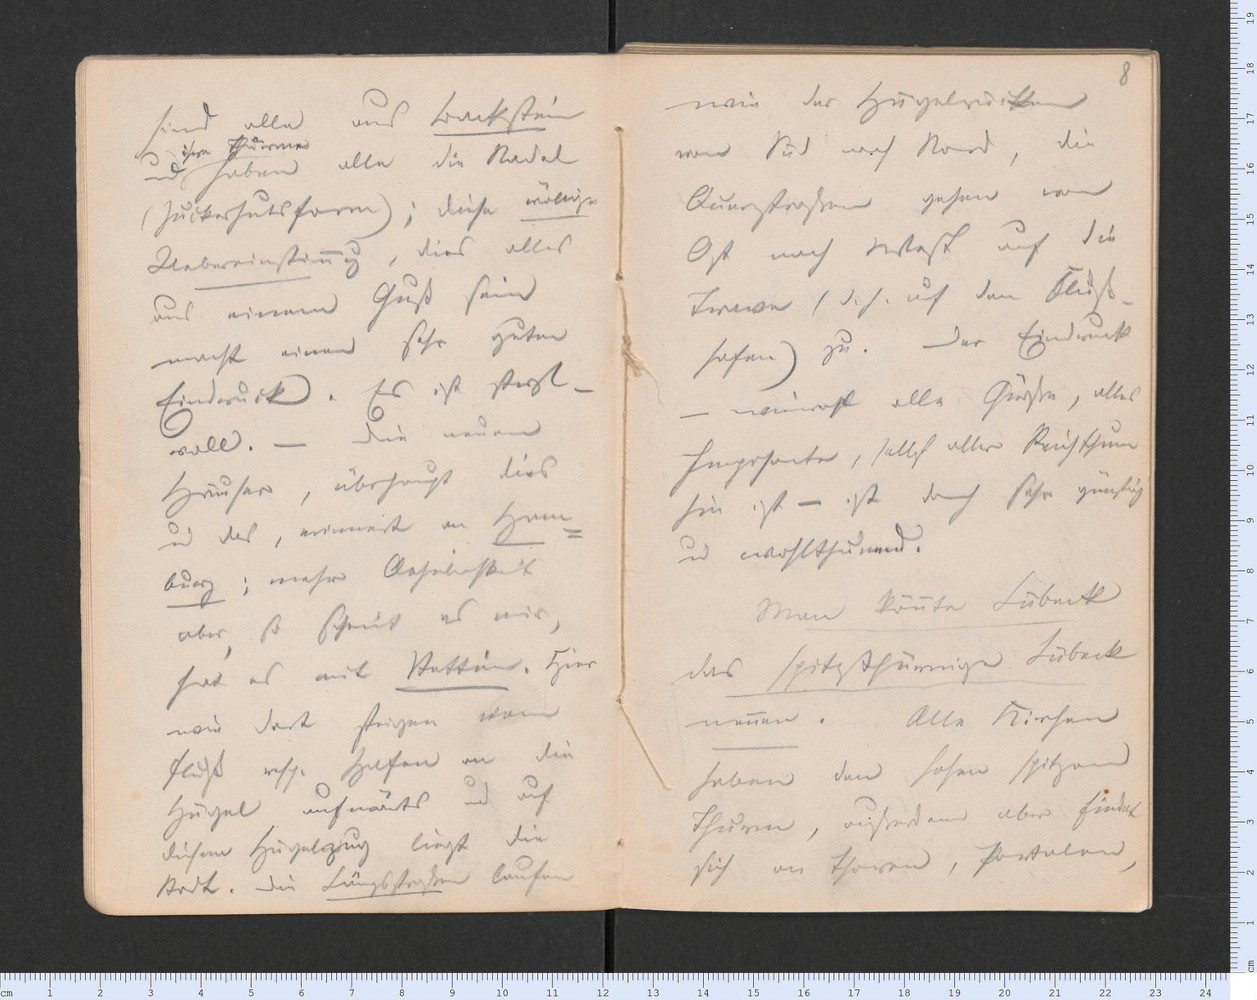 sind alle aus Backstein
ihre Thürme
und haben alle die Nadel
(Zuckerhutsform); diese völlige
Uebereinstimmg, dies alles
aus einem Guß sein
macht einen sehr guten
Eindruck. Es ist styl-
voll. — Die neuen
Häuser, überhaupt dies
u das, erinnert an Ham-
burg; mehr Aehnlichkeit
aber, so scheint es mir,
hat es mit Stettin. Hier
wie dort steigen vom
Fluß resp. Hafen an die
Hügel aufwärts und auf
diesem Hügelzug liegt die
Stadt. Die Längsstraßen laufen
8
wie der Hügelrücken
von Süd nach Nord, die
Querstraßen gehen von
Ost nach West auf die
Trave (d. h. auf den Fluß-
hafen) zu. Der Eindruck
— wiewohl alle Größe, alles
Imposante, selbst aller Reichthum
hin ist — ist doch sehr günstig
u wohlthuend.
Man könnte Lübeck
das spitzthürmige Lübeck
nennen. Alle Kirchen
haben den hohen spitzen
Thurm, außerdem aber findet
sich an Thoren, Portalen,